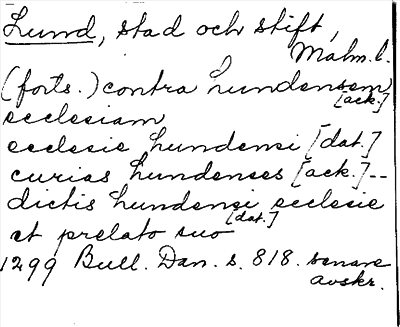 Lund, stad och stift,
Malm. l.
(forts.) contra Lundensem
[ack.]
ecclesiam
ecclesie Lundensi [dat.]
curias Lundenses [ack.]--
dictis Lundensi ecclesie
et prelato suo [dat.]
1299 Bull. Dan. s. 818. senare
avskr.